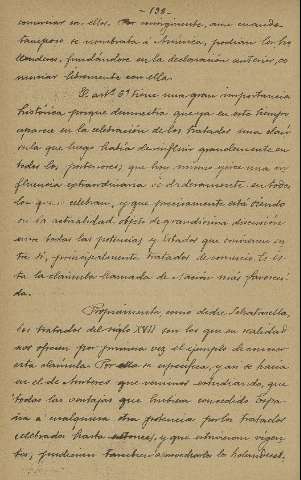 - 198 -
comerciar con ellos. Por consiguiente, aun cuando
tampoco se nombrata á America, podrian los ho-
landeses, fundándose en la declaración anterior, co-
merciar libremente con ella.
El artº 6º tiene una gran importancia
histórica porque demuestra que ya en este tiempo
aparece en la celebración de los tratados una cláu-
sula que luego habia de influir grandemente en
todos los posteriores; que hoy mismo ejerce una in-
fluencia extraordinaria é indiscutible en todos
los que se celebran, y que precisamente está siendo
en la actualidad objeto de grandisima discusión
entre todas las potencias y Estados que conciertan en-
tre sí, principalmente tratados de comercio. Es és-
ta la cláusula llamada de Nación más favoreci-
da.
Propiamente, como dedie
los tratados del siglo XVII son los que en realidad
nos ofrecen por primera vez el ejemplo de
esta cláusula. Por ella se especifica, y asi se hacia
en el de Munster que venimos estudiando, que
todas las ventajas que hubiera concedido Espa-
ña á cualquiera otra potencia por los tratados
celebrados hasta entonces, y que estuvieran vigen-
tes, pudieran también los holandeses.